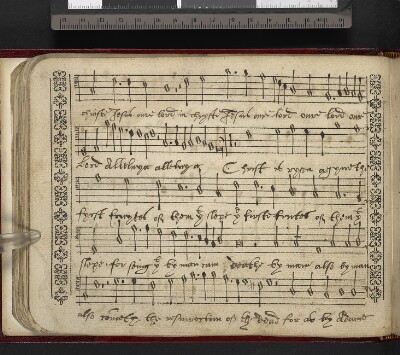 christe Jesus oure lord in chryste Jesus oure lord oure lord oure
lord Alleluya alleluya Christ is rysen agayne the
fyrst frutes of them yt slepe ye firste frutes of them yt
slepe for seing yt by man cam deathe by man also by man
also cometh the resurrection of the dead for as by Adame